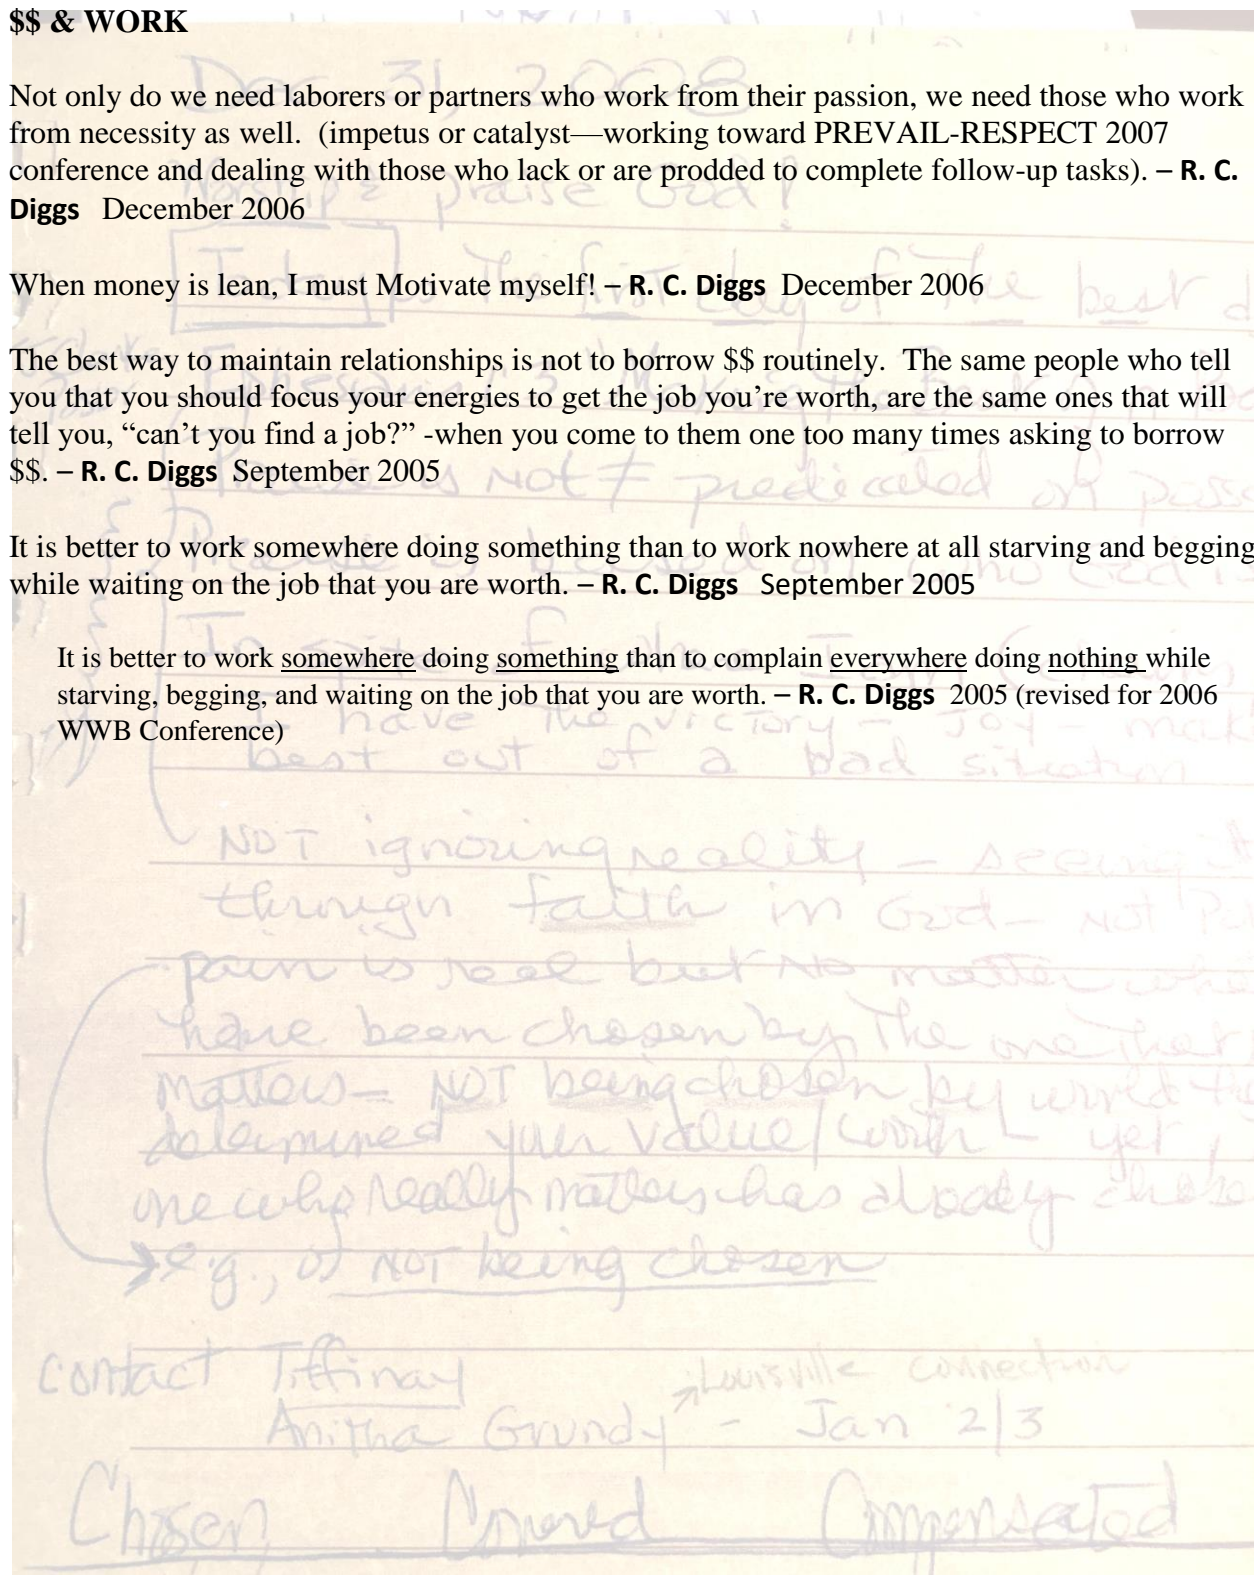 $$ & WORK
Dec 31, 2008
Not only do we need laborers or partners who work from their passion, we need those who work
from necessity as well.  (impetus or catalyst—working toward PREVAIL-RESPECT 2007
conference and dealing with those who lack or are prodded to complete follow-up tasks). – R. C.
Diggs   December 2006
Worship & praise God!
When money is lean, I must Motivate myself! – R. C. Diggs  December 2006
Today is the first day of the best
The best way to maintain relationships is not to borrow $$ routinely.  The same people who tell
you that you should focus your energies to get the job you’re worth, are the same ones that will
tell you, “can’t you find a job?” -when you come to them one too many times asking to borrow
$$. – R. C. Diggs  September 2005
NOT ≠ predicated on
It is better to work somewhere doing something than to work nowhere at all starving and begging
while waiting on the job that you are worth. – R. C. Diggs   September 2005
In spite of
It is better to work somewhere doing something than to complain everywhere doing nothing while
starving, begging, and waiting on the job that you are worth. – R. C. Diggs  2005 (revised for 2006
WWB Conference)
have the victory – Joy –
best out of a bad situation
NOT ignoring reality – seeing it
through faith in God – NOT
pain is real but no matter
have been chosen by the one that
matters – NOT being chosen by world
determined your value/worth – yet
one who really matters has already
e.g., of NOT being chosen
contact Tiffinay
Louisville connection
Anitha Grundy – Jan 2/3
Chosen Compensated